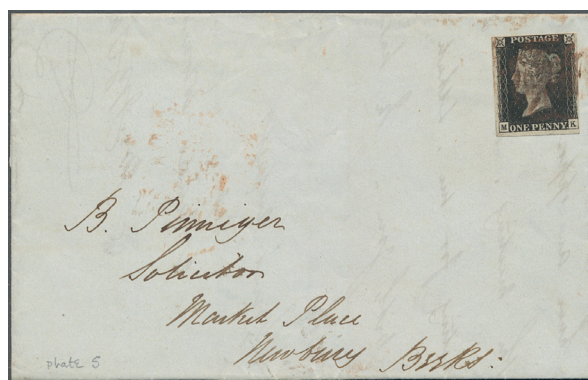 POSTAGE
M ONE PENNY K
B. Pinniger
Solicitor
Market Place
Newbury Berks:
plate 5